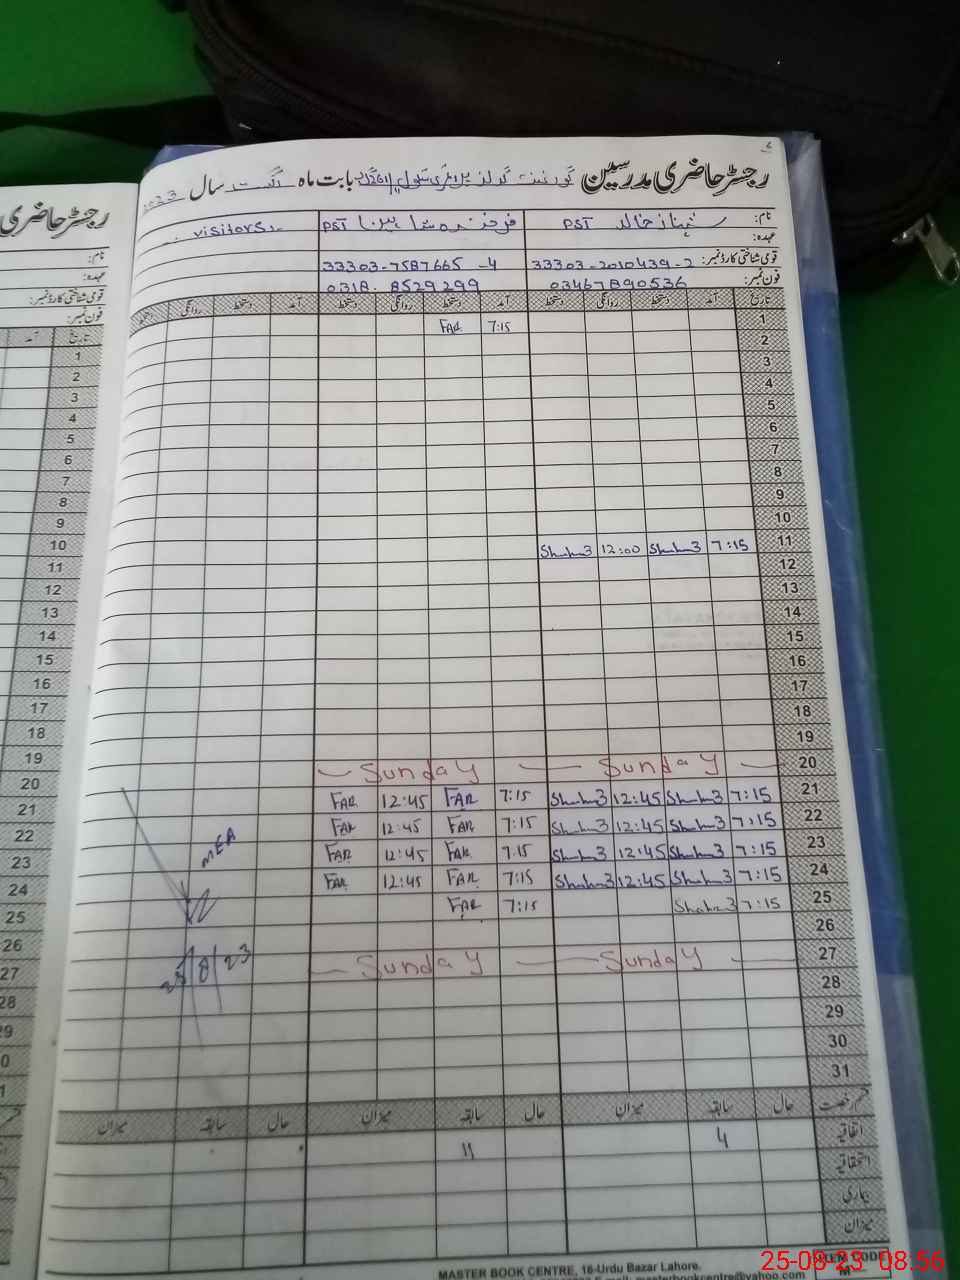 رجسٹر حاضری مدرسین گورنمنٹ گرلز پرائمری سکول بابت ماہ اگست سال 2023
نام: شہناز خالد PST فرخندہ شاہین PST visitors
عہدہ:
قومی شناختی کارڈ نمبر: 33303-2010439-2 33303-7587665-4
فون نمبر: 03467890536 0318.8529299
تاریخ آمد دستخط روانگی دستخط آمد دستخط روانگی دستخط آمد دستخط روانگی دستخط
1 7:15 FAR
2
3
4
5
6
7
8
9
10
11 7:15 12:00
12
13
14
15
16
17
18
19
20 Sunday Sunday
21 7:15 12:45 7:15 FAR 12:45 FAR
22 7:15 12:45 7:15 FAR 12:45 FAR
23 7:15 12:45 7:15 FAR 12:45 FAR MEA
24 7:15 12:45 7:15 FAR 12:45 FAR
25 7:15 7:15 FAR
26
27 Sunday Sunday 25/8/23
28
29
30
31
قسم رخصت حال سابقہ میزان حال سابقہ میزان حال سابقہ میزان
اتفاقیہ 4 11
استحقاقیہ
بیماری
میزان
MASTER BOOK CENTRE, 16-Urdu Bazar Lahore.
masterbookcentre@yahoo.com
ITEM CODE
رجسٹر حاضری
نام:
عہدہ:
قومی شناختی کارڈ نمبر:
فون نمبر:
تاریخ آمد
1
2
3
4
5
6
7
8
9
10
11
12
13
14
15
16
17
18
19
20
21
22
23
24
25
26
27
28
25-08-23 08:56